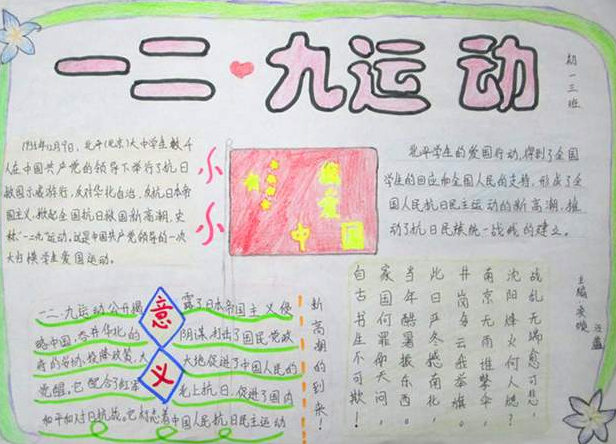 一二·九运动
初一三班
1935年12月9日，北平(北京)大中学生数千
人在中国共产党的领导下举行了抗日
救国示威游行，反对华北自治，反抗日本帝
国主义，掀起全国抗日救国新高潮，史
称“一二九”运动。这是中国共产党领导的一次
大规模学生爱国运动。
小
小
中
国
北平学生的爱国行动，得到了全国
学生的回应和全国人民的支持，形成了全
国人民抗日民主运动的新高潮，推
动了抗日民族统一战线的建立。
意义
一二·九运动公开揭露了日本帝国主义侵
略中国，吞并华北的阴谋，打击了国民党政
府的妥协投降政策，大大地促进了中国人民的
觉醒。它配合了红军北上抗日，促进了国内
和平和对日抗战。它标志着中国人民抗日民主运动
新高潮的到来！
战乱无端愈可悲
沈阳烽火何人
南京无雨推擎伞
井岗多云举
此日严冬撼西北
当年酷暑东南
家国何罪天问
自古书生不可欺！
主编